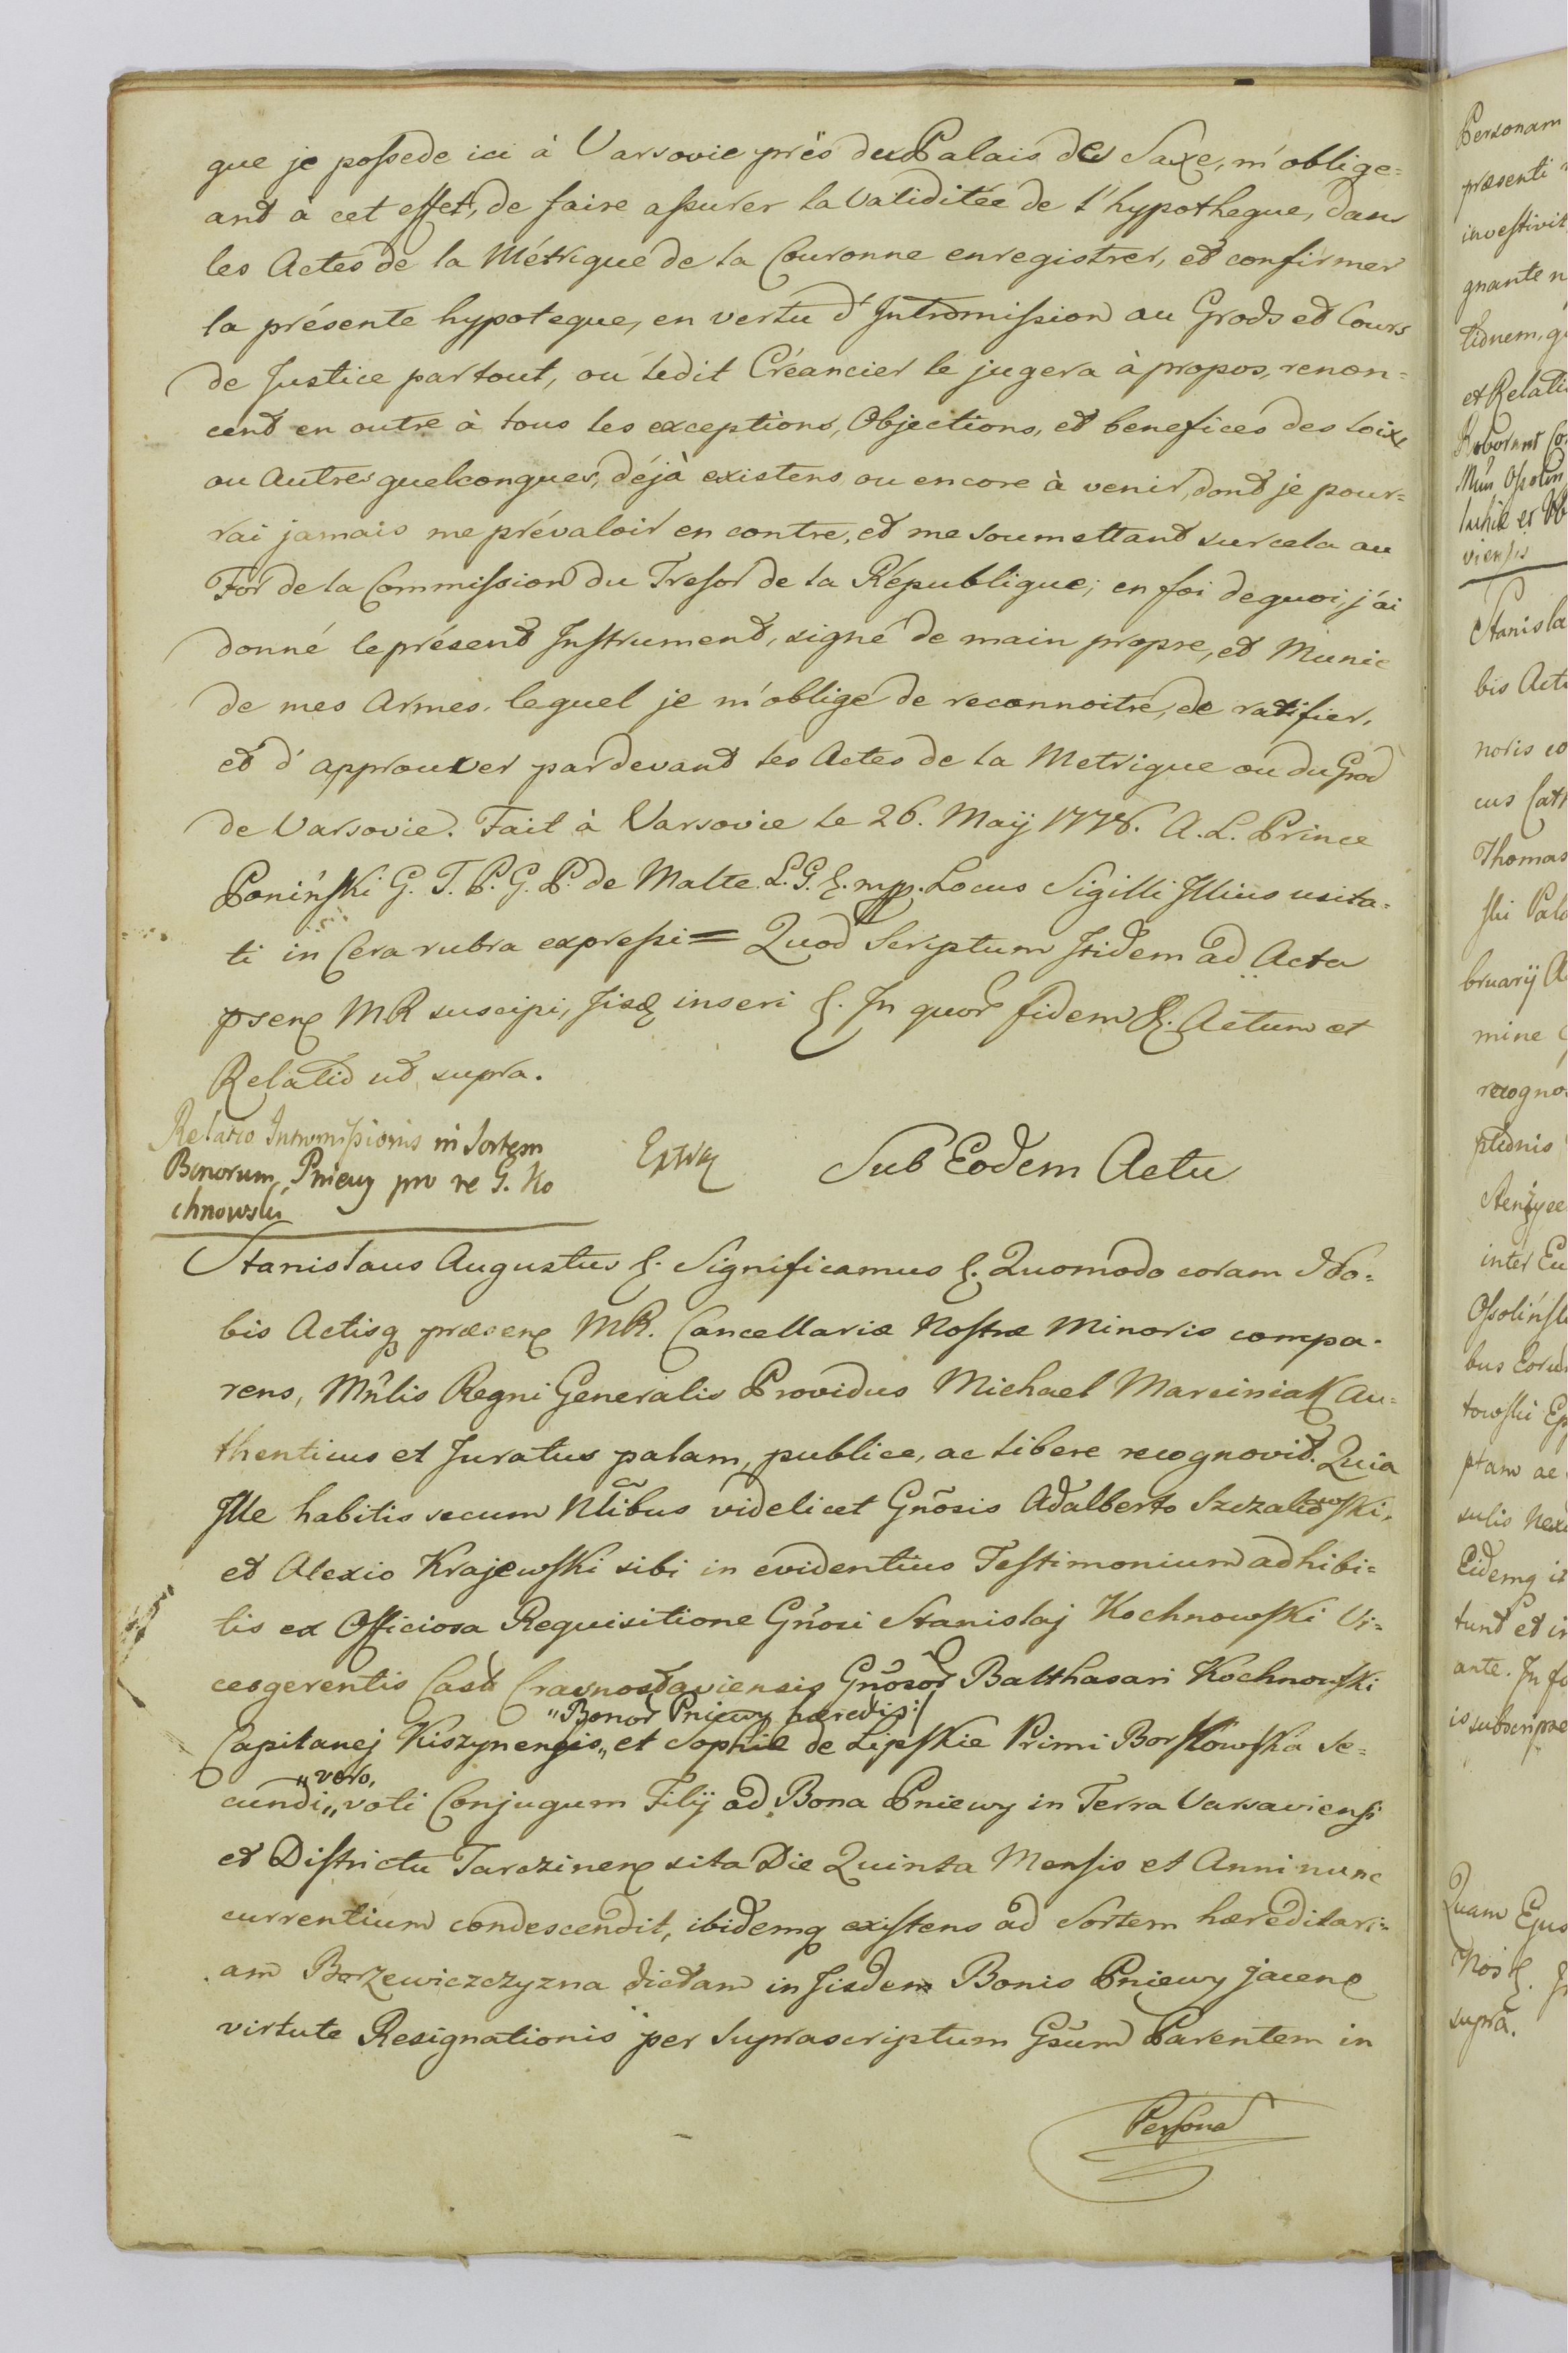 que je possede ici à Varsovie près du Palais de Saxe, m'oblige=
ant à cet effet, de faire assurer la Validitée de l'hypotheque, dans
les Actes de la Métrique de la Couronne enregistrer, et confirmer
la présente hypoteque, en vertu d'Intromission au Grods et Cours
de Justice partout, oú ledit Créancier le jugera à propos, renon=
cent en outre à tous les exceptions, Objections, et benefices des loix
ou Autres quelconques, déjà existens ou encore à venir, dont je pour=
rai jamais me prévaloir en contre, et me soumettant sur cela au
For de la Commission du Tresor de la République; en foi dequoi, j'ai
donné le présent Instrument, signé de main propre, et Munie
de mes Armes, lequel je m'oblige de reconnoitre, de ratifier,
et d'approuver pardevant les Actes de la Metrique ou du Grod
de Varsovie. Fait à Varsovie le 26. Maÿ 1778. A. L. Prince
Poniński G. T. P. G. P. de Malte. L. G. mpp. Locus Sigilli Illius usita=
ti in Cera rubra expressi = Quod Scriptum Itidem ad Acta
MR suscipi, Iisq inseri In quor fidem Actum et
Relatio ut supra.
Relatio Intromissionis in Sortem
Bonorum Pniewy pro re G. Ko
chnowski
Extr
Sub Eodem Actu
Stanislaus Augustus Significamus Quomodo coram No=
bis Actisq præsen MR. Cancellariæ Nostræ Minoris compa=
rens, Mnlis Regni Generalis Providus Michael Marciniak Au=
thenticus et Juratus palam, publice, ac libere recognovit. Quia
Ille habitis secum Nlibus videlicet Gnosis Adalberto Szczalkowski,
et Alexio Krajewski sibi in evidentius Testimonium adhibi=
tis ex Officiosa Requisitione Gnosi Stanislaj Kochnowski Vi=
cesgerentis Cast Crasnostaviensis Gnosor Balthasari Kochnowski
"Bonor Pniewy hæredis:/
Capitanej Kiszynensis,, et Sophiæ de Lipskie Primi Borkowska Se=
"vero,
cundi,, voti Conjugum Filij ad Bona Pniewy in Terra Varsaviensi
et Districtu Tarczinen sita Die Quinta Mensis et Anni nunc
currentium condescendit, ibidemq existens ad Sortem hæreditari=
am Borzewiczczyzna dictam in Iisdem Bonis Pniewy jacen
virtute Resignationis per Suprascriptum Gsum Parentem in
Persona
Personam
præsenti
investivit
gnante n
et Relati
Stanisla
bis Act
noris co
cus Cath
Thomas
ski Pala
bruarij A
mine
recogno
inter Eu
Ossolińsk
bus Eorum
towski Ep
ptam ac
sulis Nex
Eidemq it
tunt et in
ante. In fo
is subscripse
Quam Ejus
supra.